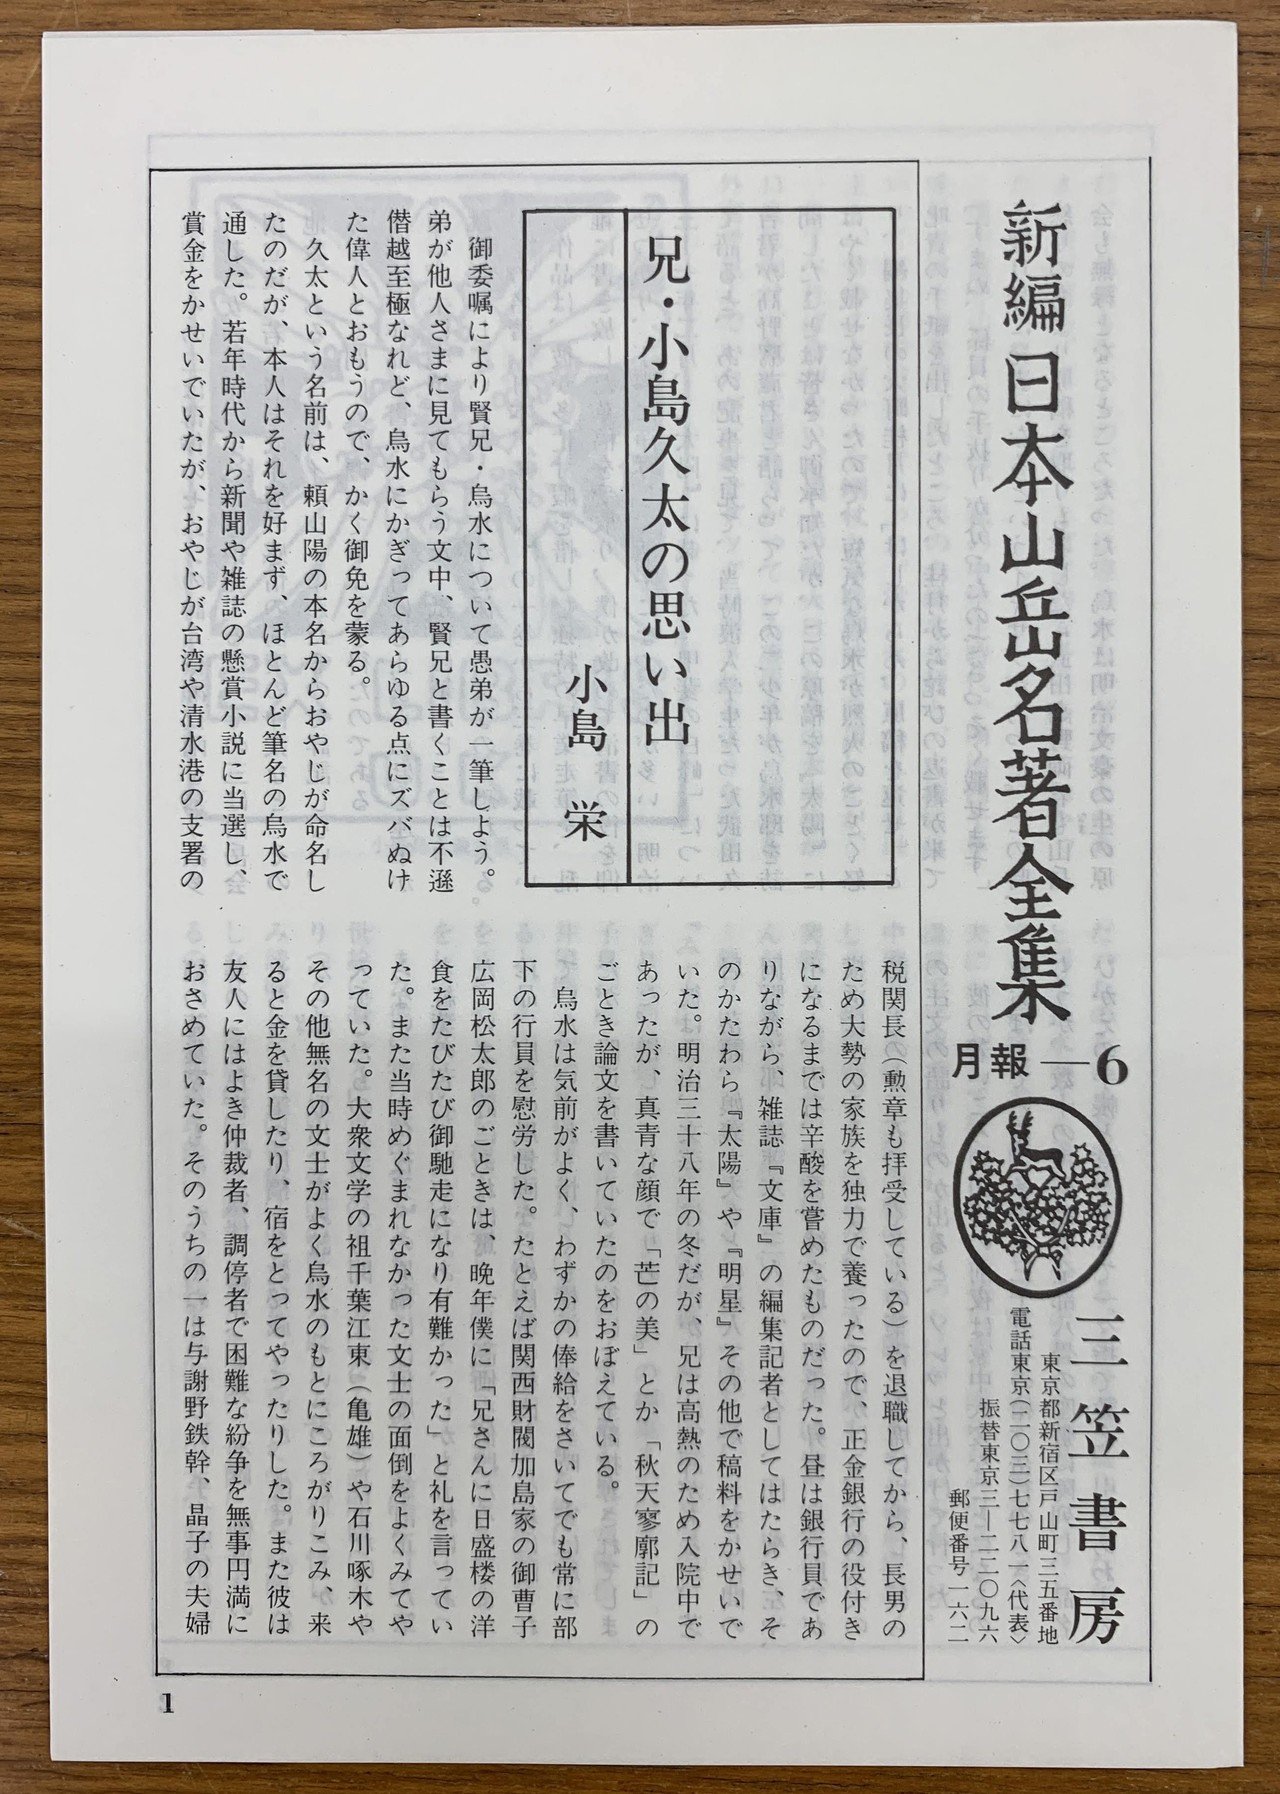 新編 日本山岳名著全集
月報—6
三笠書房
東京都新宿区戸山町三五番地
電話東京(二〇三)七七八一〈代表〉
振替東京三—二二〇九六
郵便番号一六二
兄・小島久太の思い出
小島 栄
御委嘱により賢兄・烏水について愚弟が一筆しよう。
弟が他人さまに見てもらう文中、賢兄と書くことは不遜
僣越至極なれど、烏水にかぎってあらゆる点にズバぬけ
た偉人とおもうので、かく御免を蒙る。
久太という名前は、頼山陽の本名からおやじが命名し
たのだが、本人はそれを好まず、ほとんど筆名の烏水で
通した。若年時代から新聞や雑誌の懸賞小説に当選し、
賞金をかせいでいたが、おやじが台湾や清水港の支署の
税関長(勲章も拝受している)を退職してから、長男の
ため大勢の家族を独力で養ったので、正金銀行の役付き
になるまでは辛酸を嘗めたものだった。昼は銀行員であ
りながら、雑誌『文庫』の編集記者としてはたらき、そ
のかたわら『太陽』や『明星』その他で稿料をかせいで
いた。明治三十八年の冬だが、兄は高熱のため入院中で
あったが、真青な顔で「芒の美」とか「秋天寥廓記」の
ごとき論文を書いていたのをおぼえている。
烏水は気前がよく、わずかの俸給をさいてでも常に部
下の行員を慰労した。たとえば関西財閥加島家の御曹子
広岡松太郎のごときは、晩年僕に「兄さんに日盛楼の洋
食をたびたび御馳走になり有難かった」と礼を言ってい
た。また当時めぐまれなかった文士の面倒をよくみてや
っていた。大衆文学の祖千葉江東(亀雄)や石川啄木や
その他無名の文士がよく烏水のもとにころがりこみ、来
ると金を貸したり、宿をとってやったりした。また彼は
友人にはよき仲裁者、調停者で困難な紛争を無事円満に
おさめていた。そのうちの一は与謝野鉄幹、晶子の夫婦
1